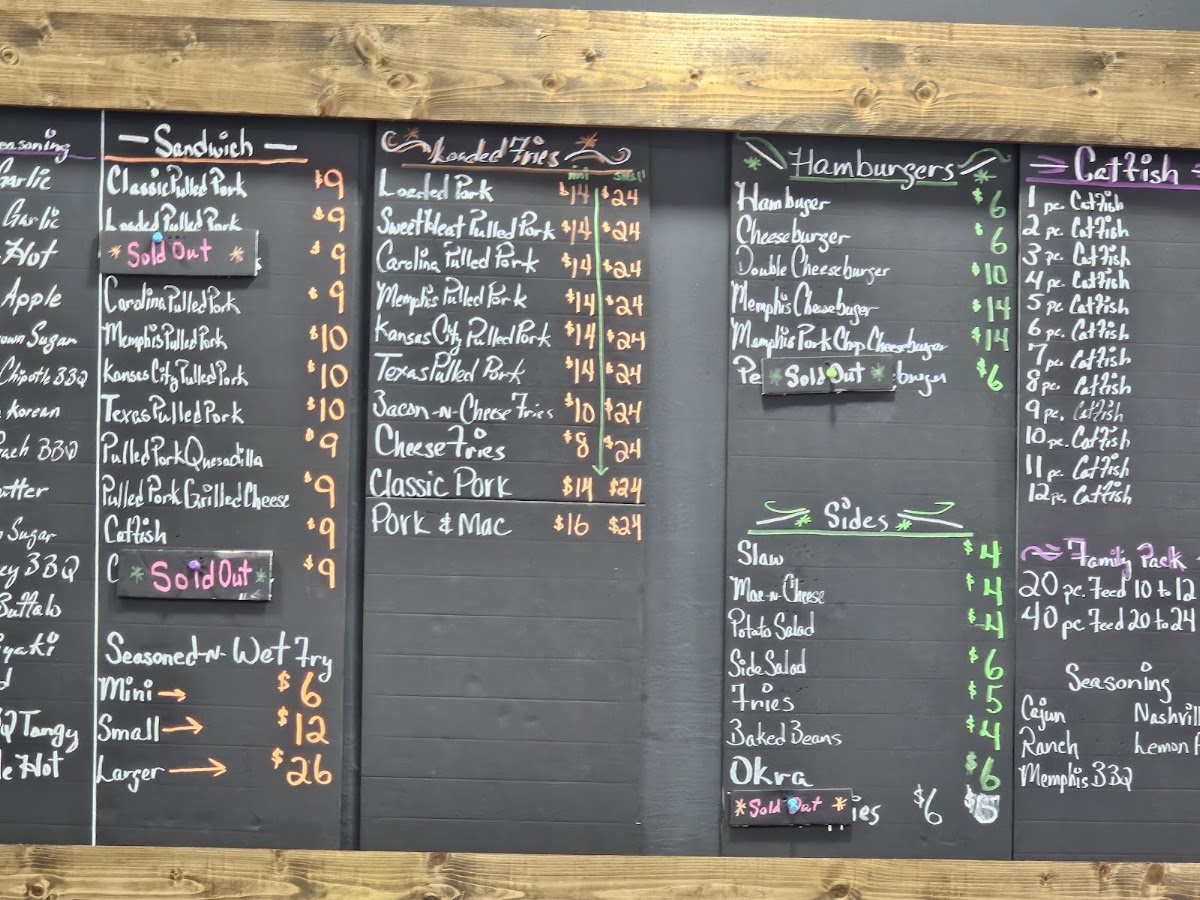 easoning
Garlic
Garlic
Hot
Apple
own Sugar
Chipotle BBQ
Korean
each BBQ
utter
Sugar
ey BBQ
Buffalo
iyaki
d
Q Tangy
le Hot
Sandwich
Classic Pulled Pork $9
Loaded Pulled Pork $9
Sold Out $9
Carolina Pulled Pork $9
Memphis Pulled Pork $10
Kansas City Pulled Pork $10
Texas Pulled Pork $10
Pulled Pork Quesadilla $9
Pulled Pork Grilled Cheese $9
Catfish $9
C Sold Out $9
Seasoned-N-Wet Fry
Mini → $6
Small → $12
Larger → $26
Loaded Fries
mini small
Loaded Pork $14 $24
Sweet Heat Pulled Pork $14 $24
Carolina Pulled Pork $14 $24
Memphis Pulled Pork $14 $24
Kansas City Pulled Pork $14 $24
Texas Pulled Pork $14 $24
Bacon-N-Cheese Fries $10 $24
Cheese Fries $8 $24
Classic Pork $14 $24
Pork & Mac $16 $24
Hamburgers
Hamburger $6
Cheeseburger $6
Double Cheeseburger $10
Memphis Cheeseburger $14
Memphis Pork Chop Cheeseburger $14
Pe Sold Out burger $6
Sides
Slaw $4
Mac-N-Cheese $4
Potato Salad $4
Side Salad $6
Fries $5
Baked Beans $4
Okra $6
Sold Out ies $6
Catfish
1 pc. Catfish
2 pc. Catfish
3 pc. Catfish
4 pc. Catfish
5 pc. Catfish
6 pc. Catfish
7 pc. Catfish
8 pc. Catfish
9 pc. Catfish
10 pc. Catfish
11 pc. Catfish
12 pc. Catfish
Family Pack
20 pc. Feed 10 to 12
40 pc. Feed 20 to 24
Seasoning
Cajun Nashvill
Ranch Lemon P
Memphis BBQ